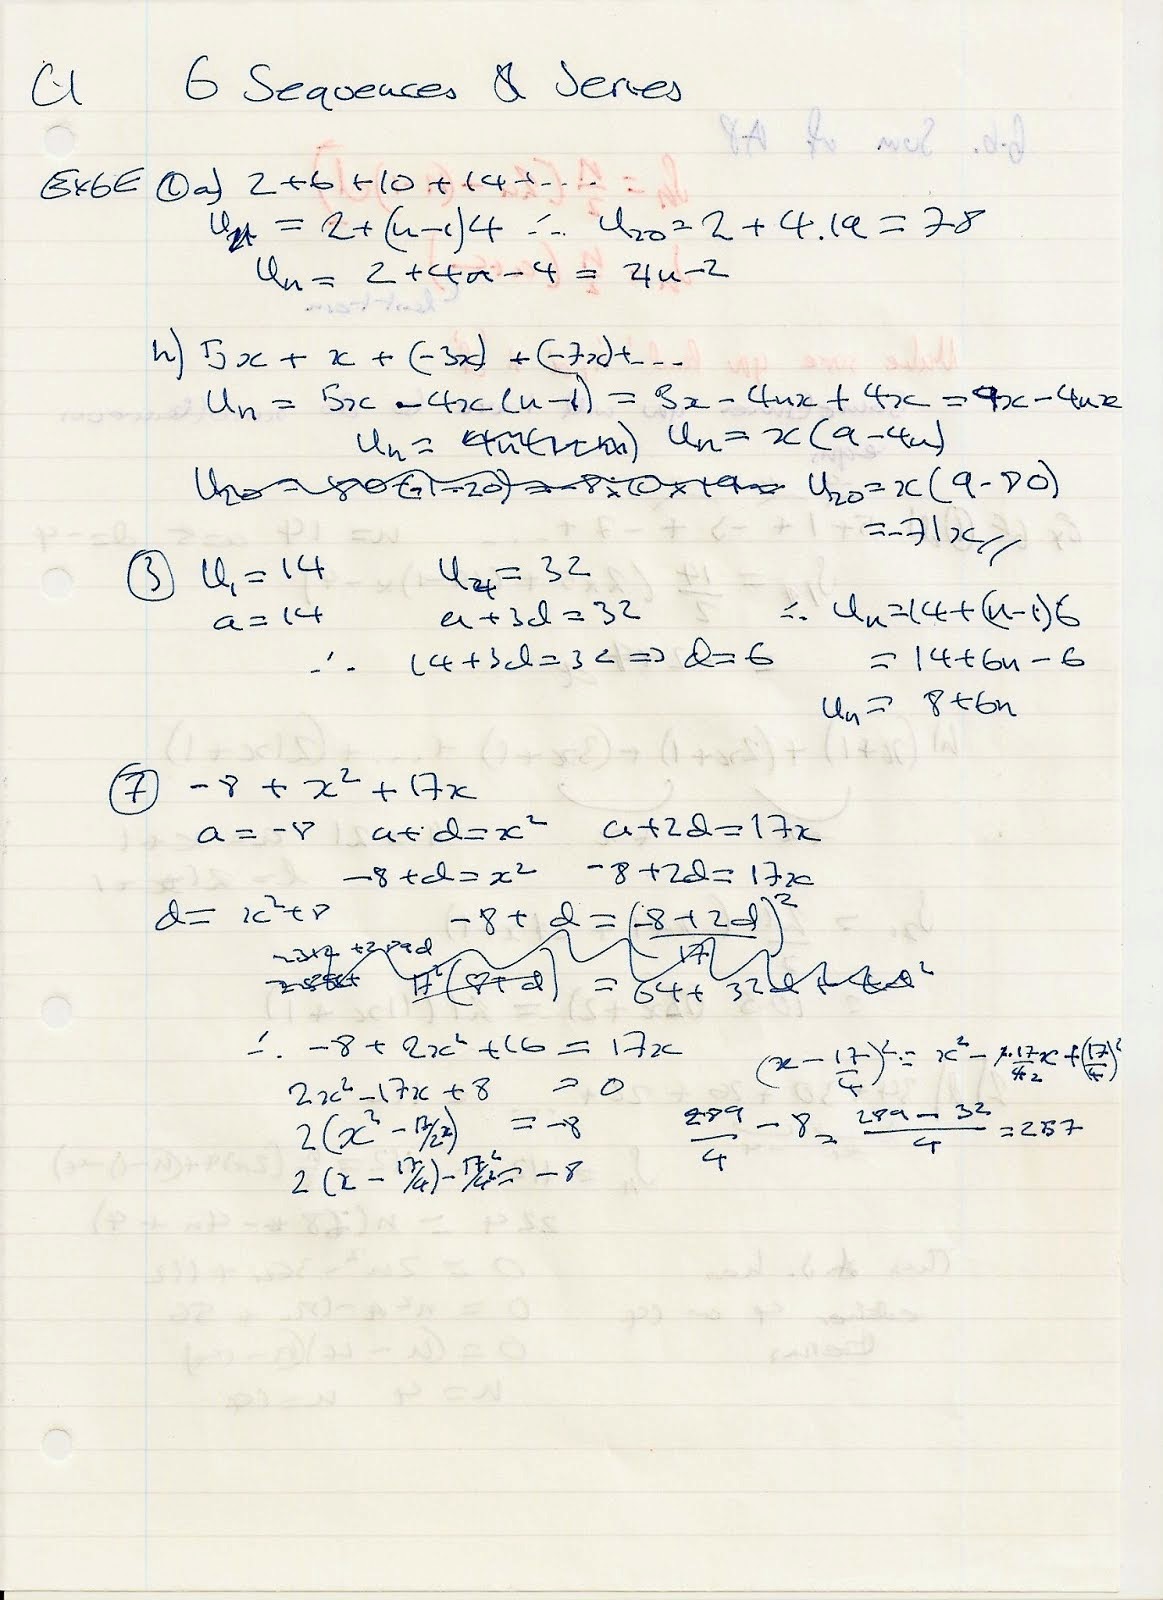 C1 6 Sequences & Series
Ex6E ① a) 2+6+10+14+...
Un = 2+(n-1)4 ∴ U20 = 2+4.19 = 78
Un = 2+4n-4 = 4n-2
h) 5x + x + (-3x) + (-7x)+...
Un = 5x - 4x(n-1) = 5x - 4nx + 4x = 9x - 4nx
Un = Un = x(9-4n)
U20 = U20 = x(9-80)
= -71x//
③ U1 = 14 U4 = 32
a = 14 a+3d = 32 ∴ Un = 14+(n-1)6
∴ 14+3d = 32 ⇒ d = 6 = 14+6n-6
Un = 8+6n
⑦ -8 + x² + 17x
a = -8 a+d = x² a+2d = 17x
-8+d = x² -8+2d = 17x
d = x²+8 -8+d = (-8+2d/17)²
17²(8+d) = 64+32d+4d²
∴ -8 + 2x² + 16 = 17x (x - 17/4)² = x² - 2.17/4 2 x + (17/4)²
2x² - 17x + 8 = 0
2(x² - 17/2x) = -8 289/4 - 8 = 289-32/4 = 257
2(x - 17/4) - 17²/4² = -8